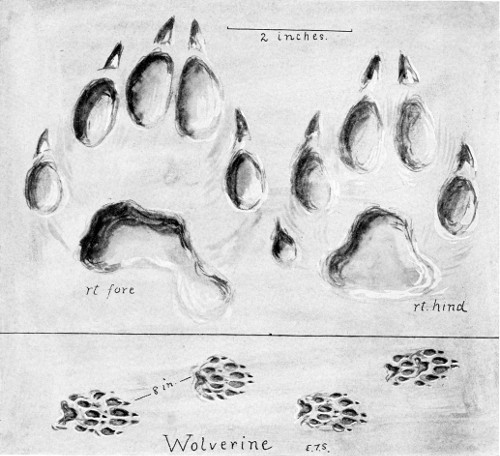 2 inches.
rt fore
rt. hind
8 in.
Wolverine
E.T.S.